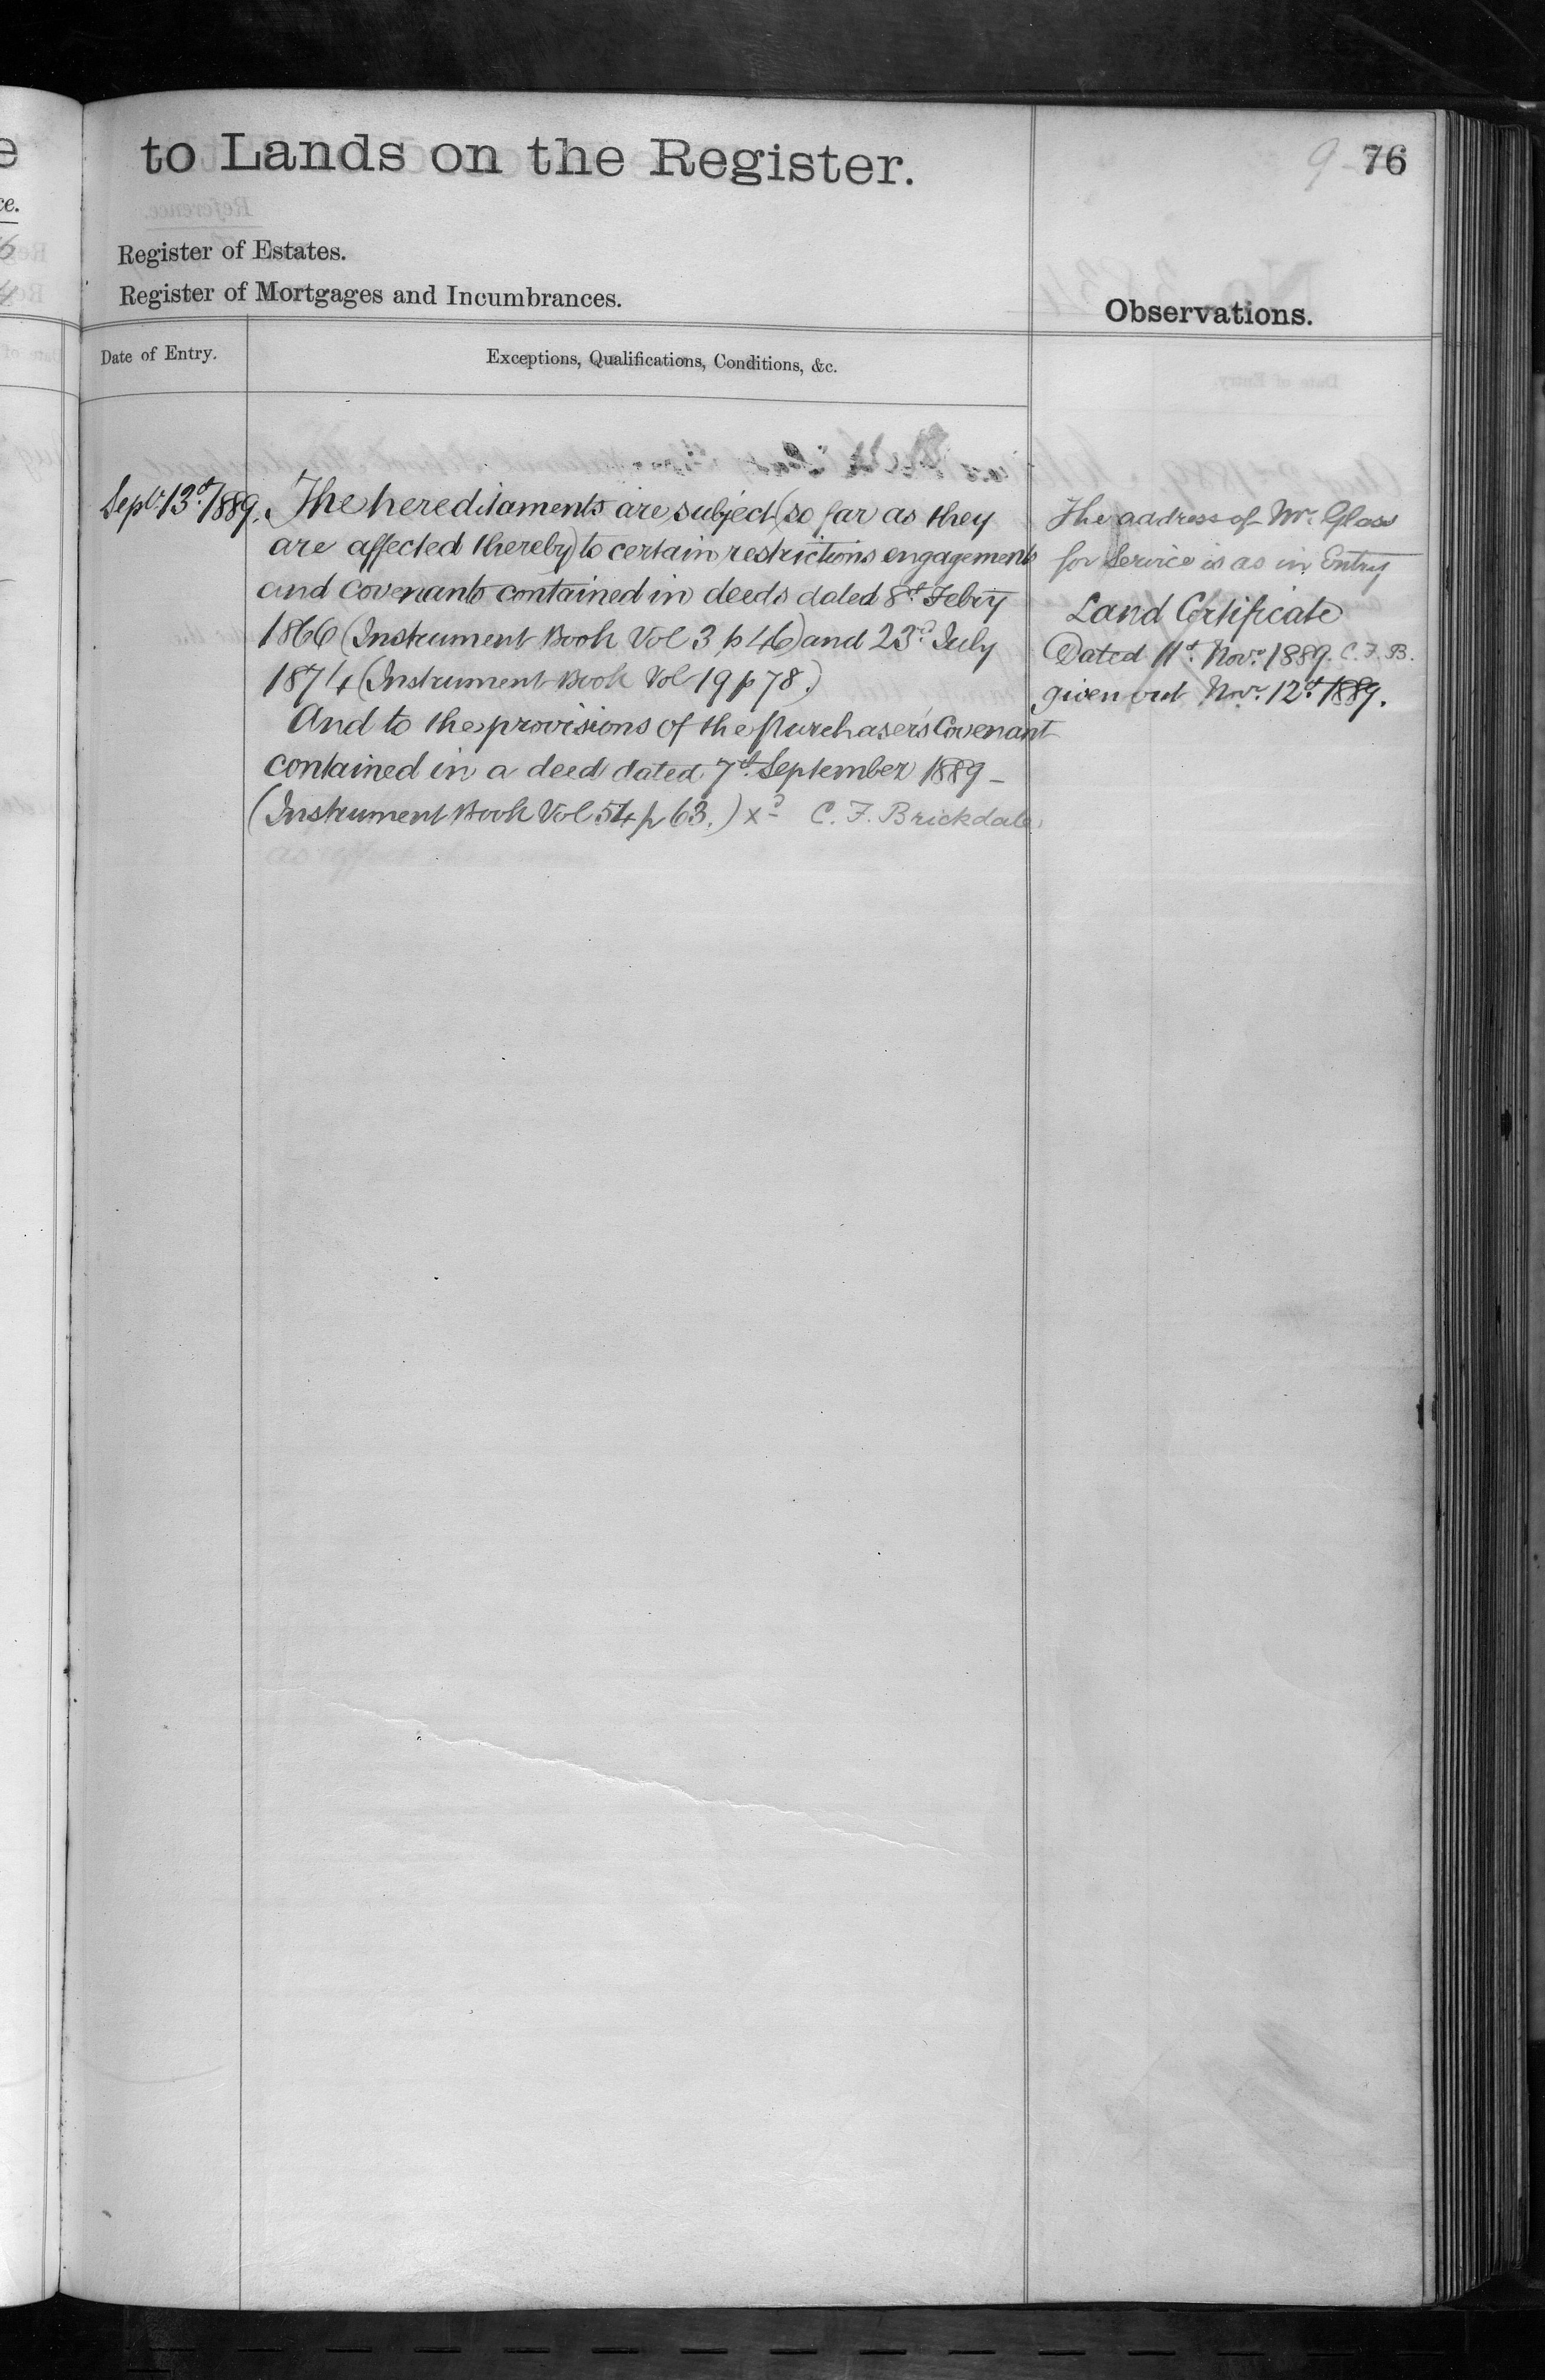 to Lands on the Register.
76
Register of Estates.
Register of Mortgages and Incumbrances.
Observations.
Date of Entry.
Exceptions, Qualifications, Conditions, &c.
Sept. 13th 1889.
The hereditaments are subject (so far as they
are affected thereby) to certain restrictions engagements
and covenants contained in deeds dated 8th Febry
1866 (Instrument Book Vol 3 p 46) and 23rd July
1874 (Instrument Book Vol 19 p 78.)
And to the provisions of the Purchaser's Covenant
contained in a deed dated 7th September 1889 –
(Instrument Book Vol 54 p 63.) xd C. F. Brickdale.
The address of Mr. Glass
for Service is as in Entry
Land Certificate
Dated 11th Novr. 1889. C. F. B.
given out Novr. 12th 1889.